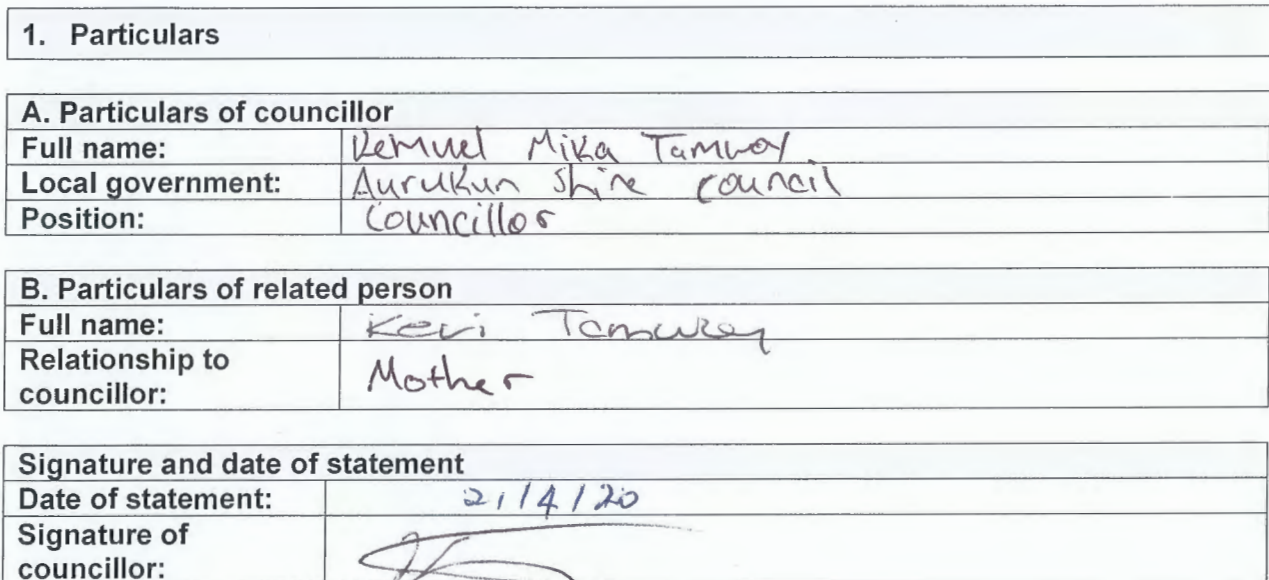 1. Particulars
A. Particulars of councillor
Full name: Kemuel Mika Tamwoy
Local government: Aurukun Shire council
Position: Councillor
B. Particulars of related person
Full name: Keri Tamwoy
Relationship to
councillor: Mother
Signature and date of statement
Date of statement: 21/4/20
Signature of
councillor: